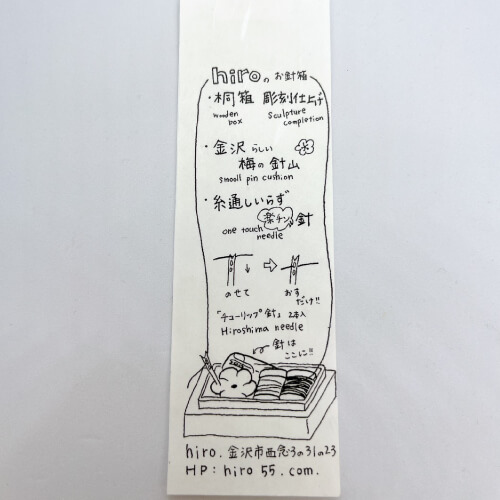 hiroの お針箱
・桐箱 彫刻仕上げ
wooden box
sculpture completion
・金沢 らしい
梅の 針山
smooll pin cushion
・糸通しいらず
楽チン 針
one touch needle
のせて
おす だけ!!
「チューリップ針」 2本入
Hiroshima needle
針は ここに!!
hiro. 金沢市西念3の31の23
HP: hiro 55. com.